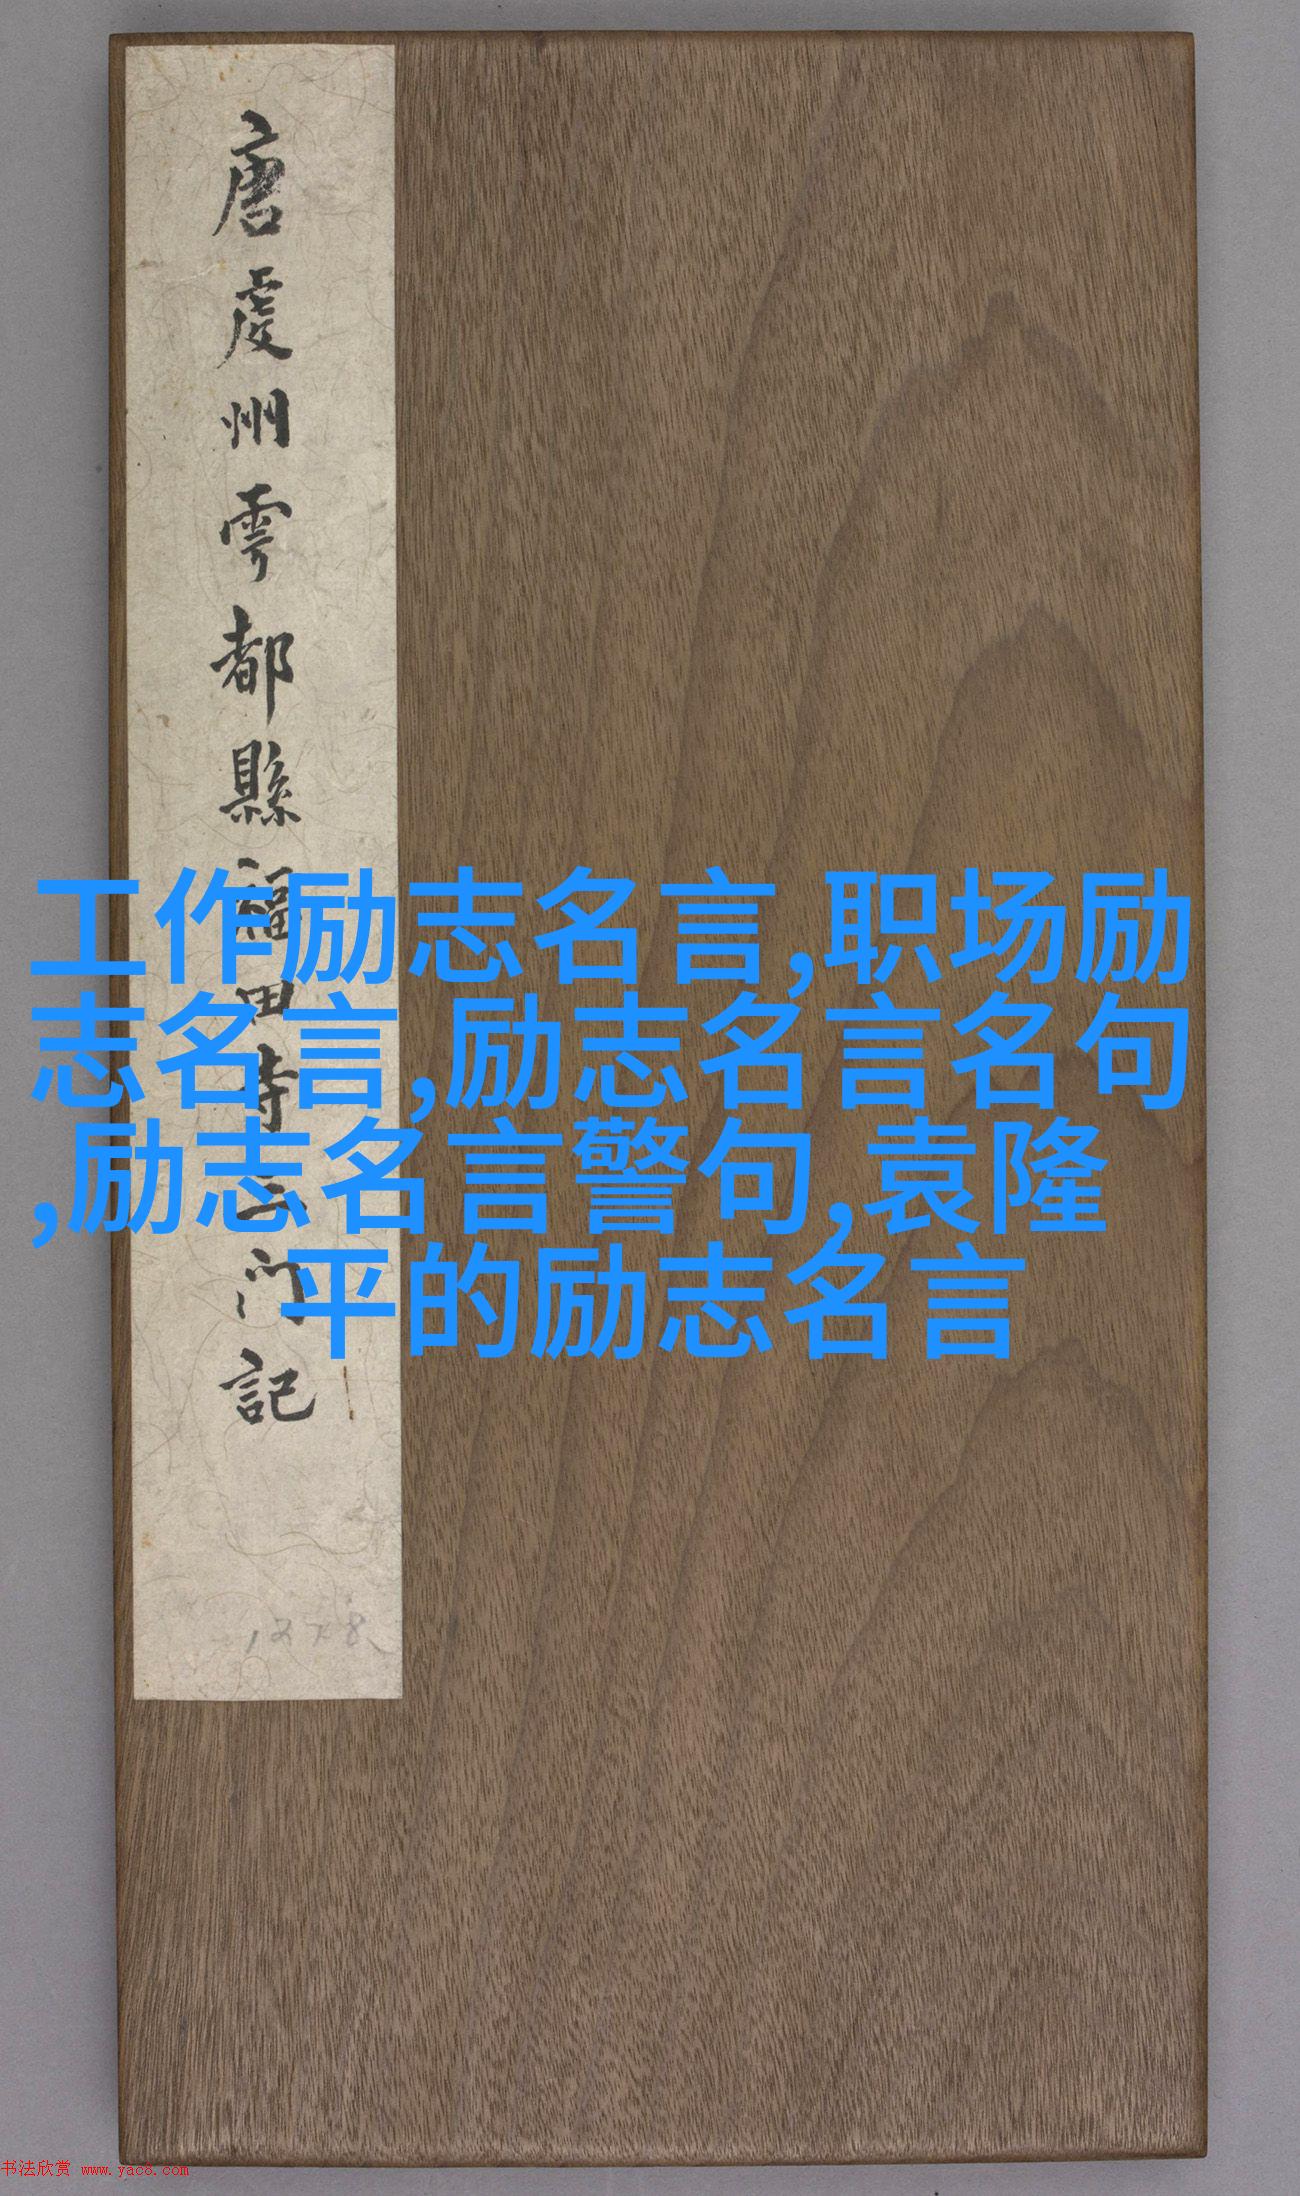 唐虔州雩都縣福田寺三门記
1278
工作励志名言,职场励
志名言,励志名言名句
,励志名言警句,袁隆
平的励志名言
书法欣赏 www.yac8.com